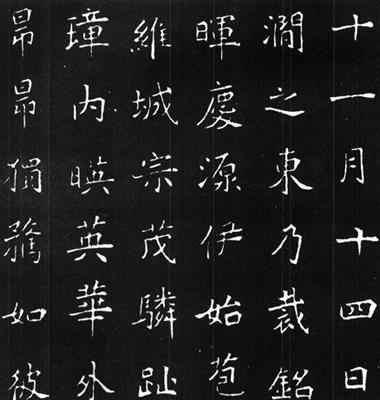 十一月十四日
澗之東乃裁銘
暉慶源伊始苞
維城宗茂驎趾
璋内暎英華外
昂昂獨如彼